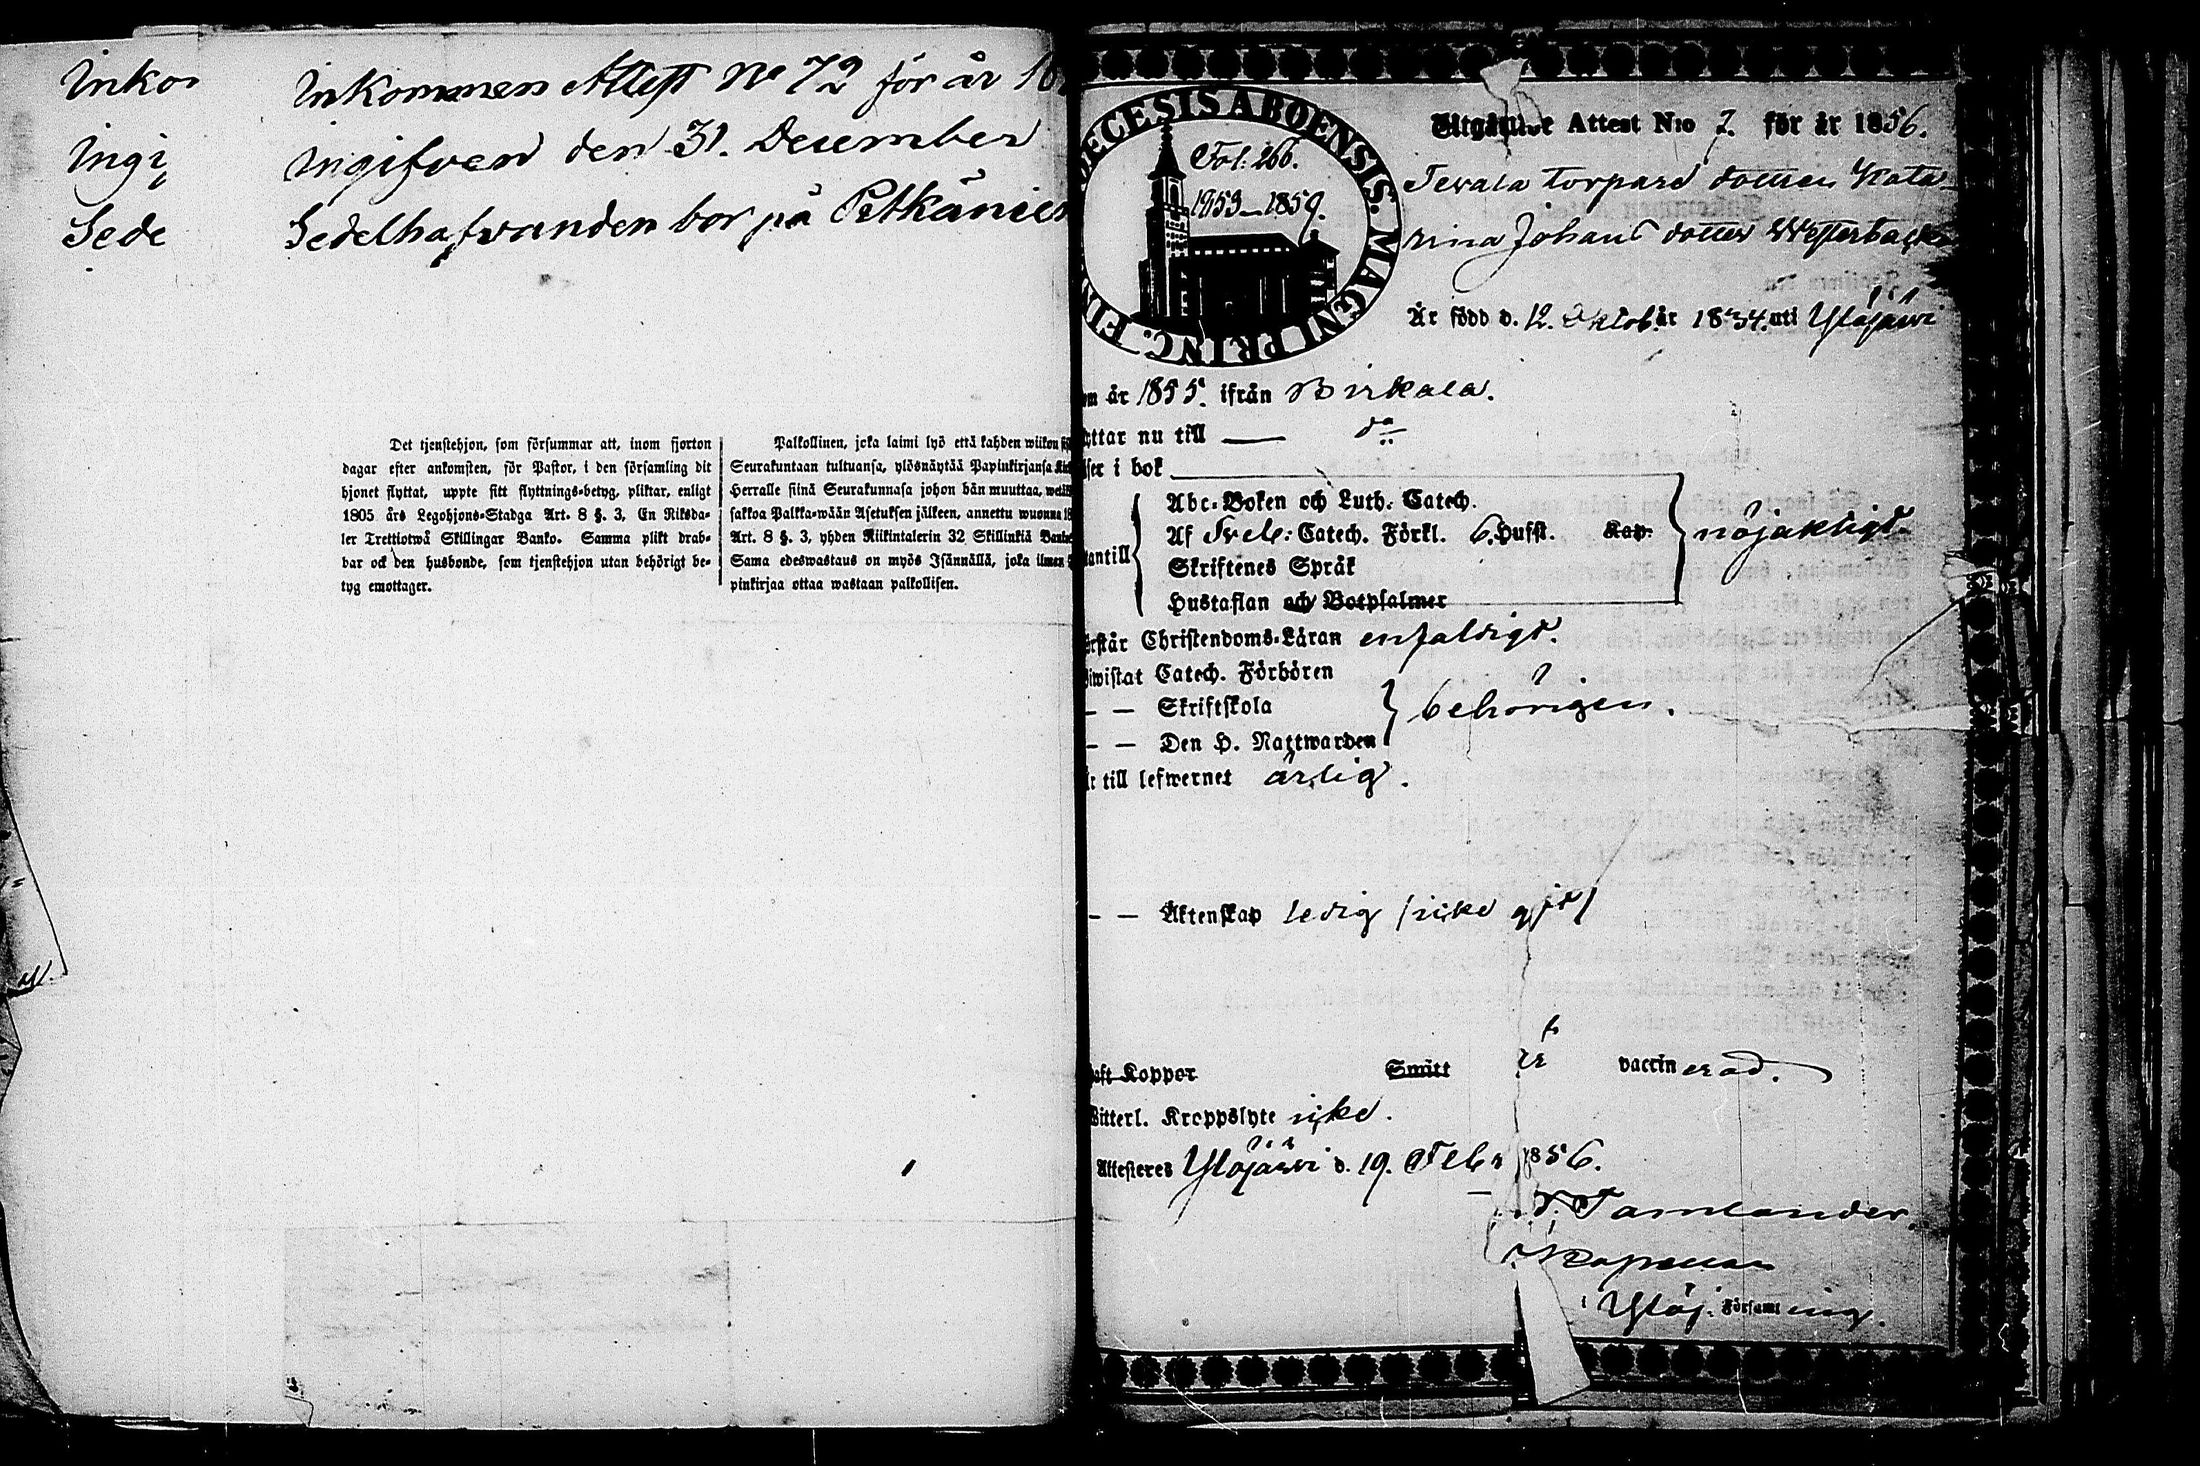 Inko
Ingi
Sede
Inkommen Attest No 72 för år 18
Ingifven den 31. December
Sedelhafvanden bor på
Det tjenstehjon, som försummar att, inom fjorton
dagar efter ankomsten, för Pastor, i den församling dit
hjonet flyttat, uppte sitt flyttnings-betyg, pliktar, enligt
1805 års Legohjons-Stadga Art. 8 §. 3, En Riksda-
ler Trettiotwå Skillingar Banko. Samma plikt drab-
bar ock den husbonde, som tjenstehjon utan behörigt be-
tyg emottager.
Palkollinen, joka laimi lyö että kahden wiikon
Seurakuntaan tultuansa, ylösnäytää Papinkirjansa
Herralle siinä Seurakunnasa johon hän muuttaa,
sakkoa Palkka-wään Asetuksen jälkeen, annettu wuonna 18
Art. 8 §. 3, yhden Riikintalerin 32 Skillinkiä
Sama edeswastaus on myös Isännällä, joka ilman
pinkirjaa ottaa wastaan palkollisen.
ECESIS ABOENSIS. MAGNI PRINC. FIN
Fol. 266.
1853–1859.
Utgånget Attest N:o 7. för år 1856.
Torpare dottren Kata-
rina Johans dotter Westerback
Är född d. 12. Oktob. år 1834. uti Ylöjärvi
om år 1855. ifrån Birkala.
ttar nu till — do
ser i bok
Abc-Boken och Luth. Catech.
Af Sveb: Catech. Förkl. 6. Hufst. Kap.
antill
nöjaktigt
Skriftenes Språk
Hustaflan och Botpsalmer
rstår Christendoms-Läran enfaldigt.
iwistat Catech. Förhören
– – Skriftskola
behörigen.
– – Den H. Nattwarden
r till lefwernet ärlig.
– – Äktenskap ledig
aft Koppor Smitt är vaccinerad.
Witterl. Kroppslyte icke.
Attesteres Ylöjärvi d. 19. Febr 1856.
Tamlander.
i Ylöj. Församling.